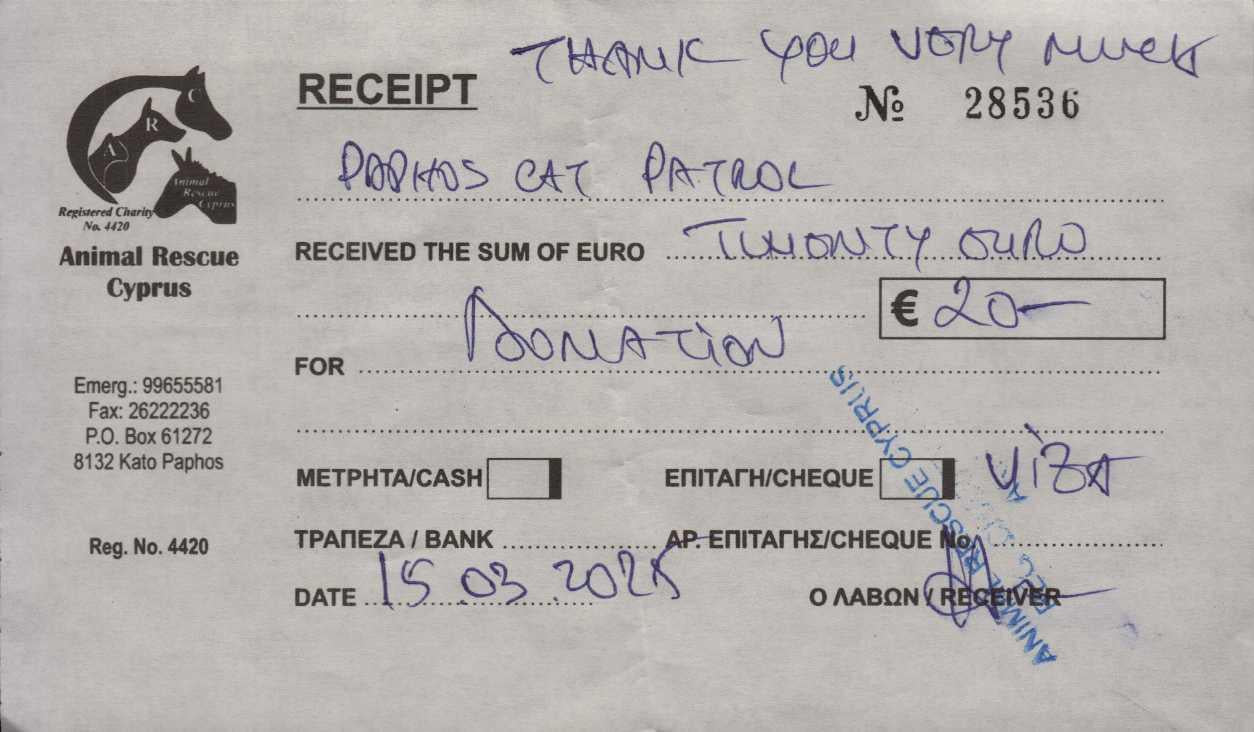 THANK YOU VERY MUCH
RECEIPT
№ 28536
A R C
Animal
Rescue
Cyprus
Registered Charity
No. 4420
Animal Rescue
Cyprus
PAPHOS CAT PATROL
RECEIVED THE SUM OF EURO TWONTY OURO
€ 20—
FOR DONATION
Emerg.: 99655581
Fax: 26222236
P.O. Box 61272
8132 Kato Paphos
ΜΕΤΡΗΤΑ/CASH ΕΠΙΤΑΓΗ/CHEQUE VIZA
Reg. No. 4420
ΤΡΑΠΕΖΑ / BANK ΑΡ. ΕΠΙΤΑΓΗΣ/CHEQUE No.
DATE 15.03.2025
Ο ΛΑΒΩΝ / RECEIVER
ANIMAL RESCUE CYPRUS